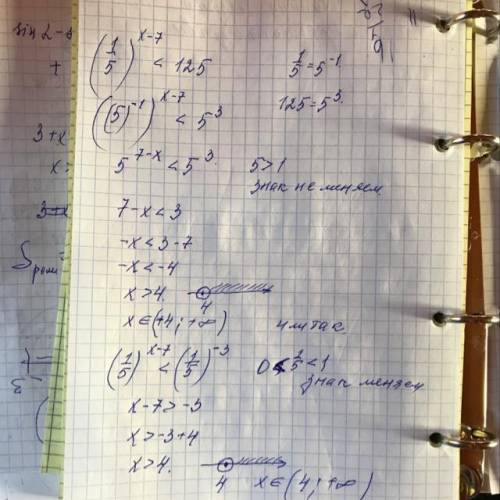 sin 2 -
(1/5)^(x-7) < 125    1/5 = 5^-1
+
((5)^-1)^(x-7) < 5^3    125 = 5^3.
3+x
5^(7-x) < 5^3.    5>1
x
знак не меняем
3+x    7-x<3
-x<3-7
-x<-4
x>4.    4
x∈(+4; +∞)    или так
(1/5)^(x-7) < (1/5)^-3    0<1/5<1
знак меняем
x-7>-3
x>-3+4
x>4.    4    x∈(4; +∞)